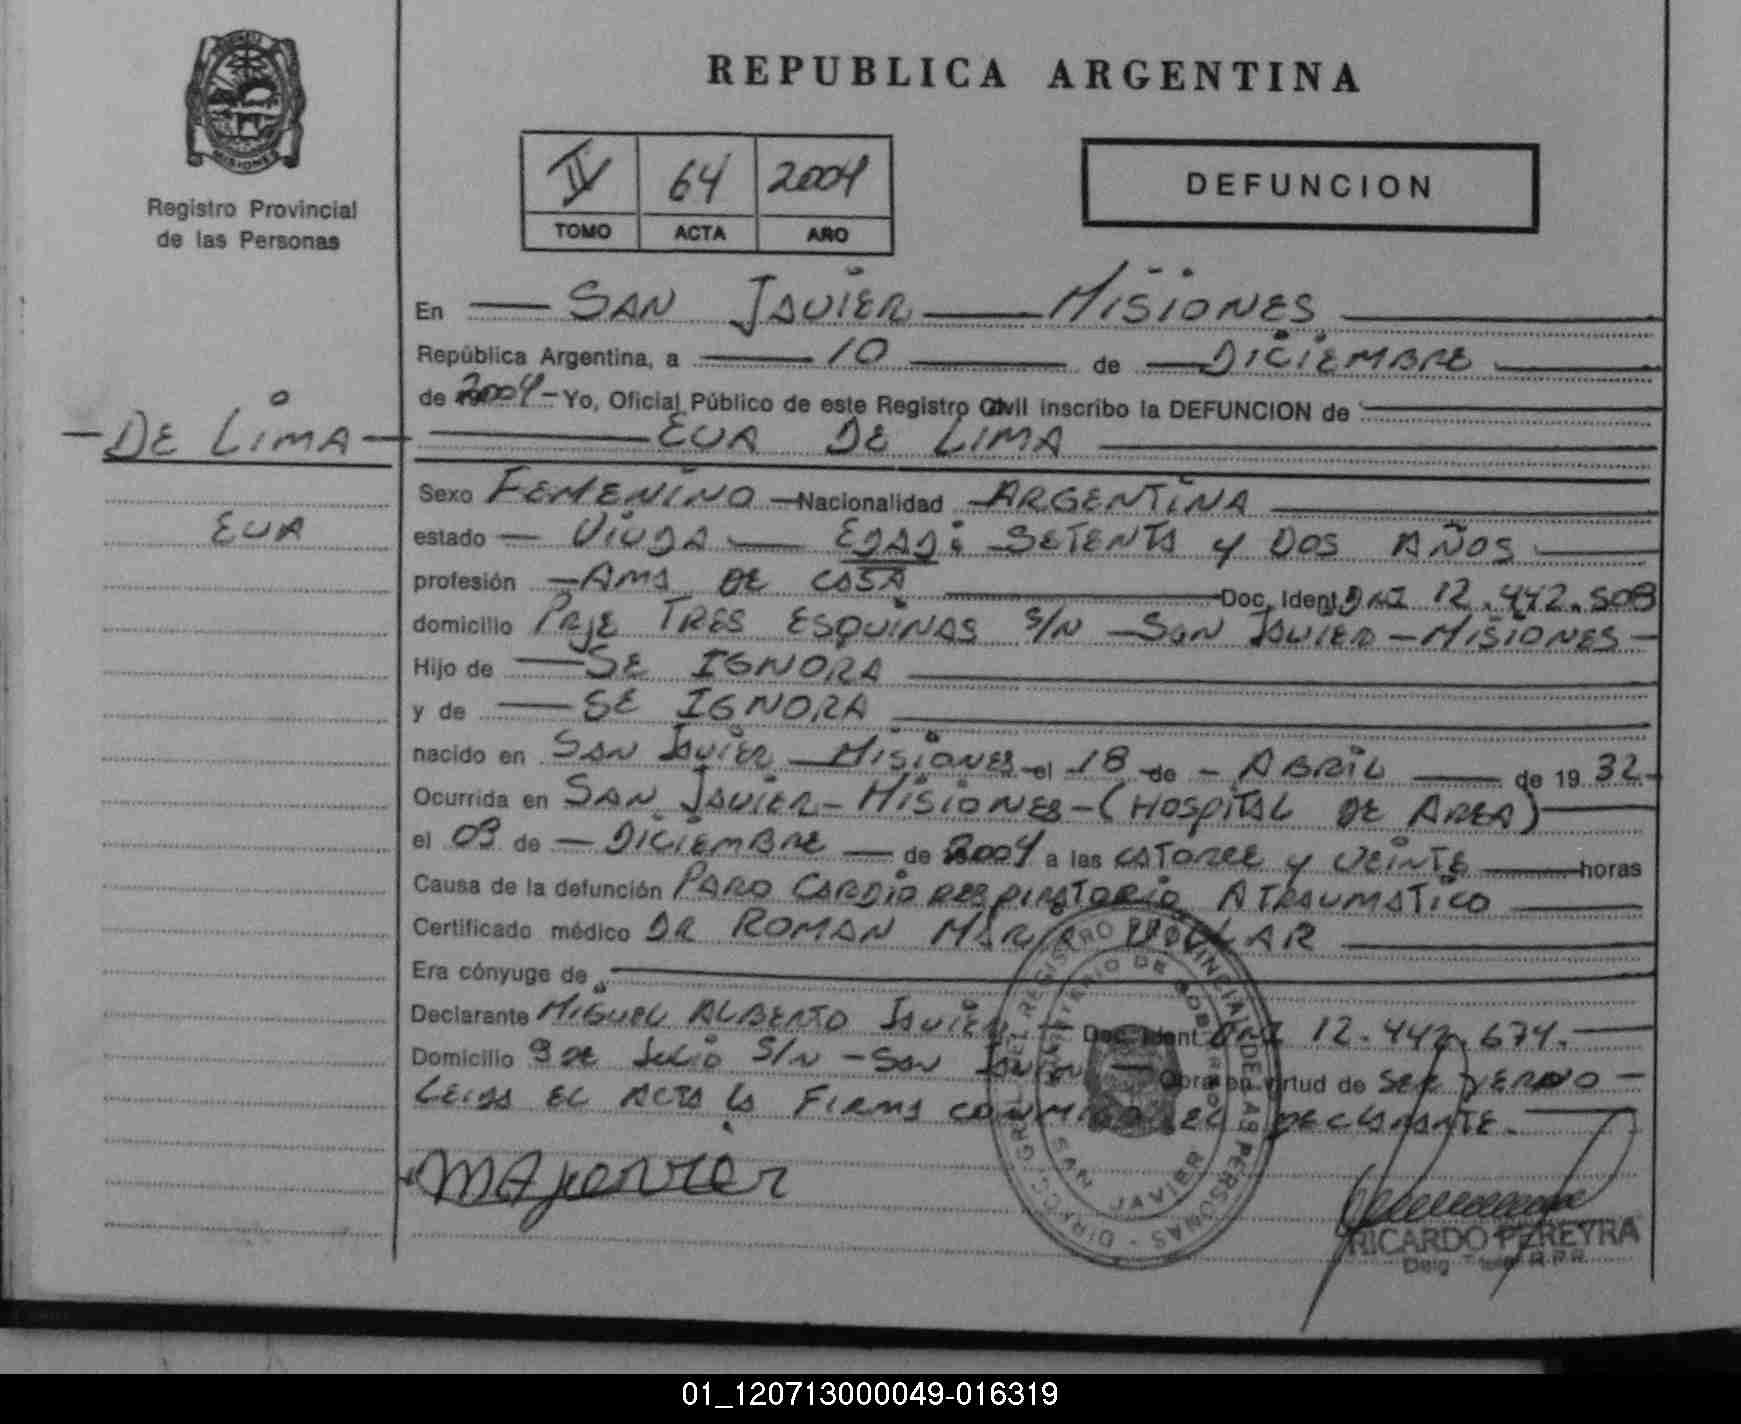 REPUBLICA ARGENTINA
MISIONES
Registro Provincial
de las Personas
IV 64 2004
TOMO ACTA AÑO
DEFUNCION
En SAN JAVIER MISIONES
República Argentina, a 10 de DICIEMBRE
de 2004 - Yo, Oficial Público de este Registro Civil inscribo la DEFUNCION de
EVA DE LIMA
- DE LIMA -
EVA
Sexo FEMENINO - Nacionalidad ARGENTINA
estado - VIUDA - EDAD: SETENTA y DOS AÑOS
profesión - AMA DE CASA Doc. Ident. DNI 12.442.508
domicilio PRJE TRES ESQUINAS S/N - SAN JAVIER - MISIONES -
Hijo de SE IGNORA
y de SE IGNORA
nacido en SAN JAVIER MISIONES el 18 de - ABRIL de 19 32 -
Ocurrida en SAN JAVIER - MISIONES - (HOSPITAL DE AREA)
el 09 de - DICIEMBRE - de 2004 a las CATORCE y VEINTE horas
Causa de la defunción PARO CARDIO RESPIRATORIO ATRAUMATICO
Certificado médico DR ROMAN MARIA
Era cónyuge de
Declarante MIGUEL ALBERTO JAVIER - Doc. Ident. DNI 12.442.674.
Domicilio 9 DE JULIO S/N - SAN JAVIER - Obra en virtud de SER YERNO -
LEIDA EL ACTA LA FIRMA CONMIGO EL DECLARANTE.
MAJavier
DIRECC. GRAL. DEL REGISTRO PROVINCIAL DE LAS PERSONAS -
MINISTERIO DE GOBIERNO
SAN JAVIER
RICARDO PEREYRA
R.P.P.
01_120713000049-016319